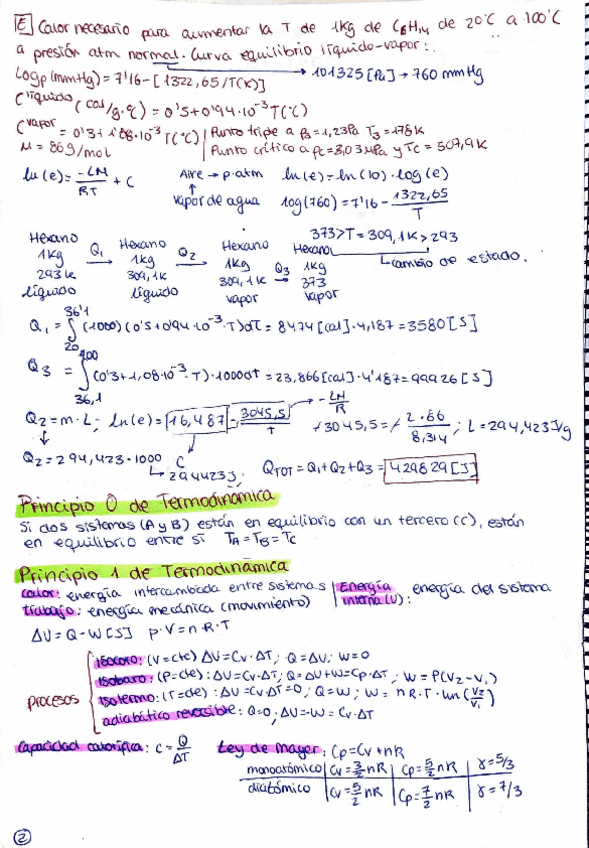 E Calor necesario para aumentar la T de 1kg de C6H14 de 20°C a 100°C
a presión atm normal. Curva equilibrio líquido-vapor:
Log p (mmHg) = 7'16 - [1322,65/T(K)] → 101325 [Pa] → 760 mmHg
C líquido (cal/g.°C) = 0'5 + 0'94·10^-3 T(°C)
C vapor = 0'3 + 1'08·10^-3 T(°C) | Punto triple a p3 = 1,23Pa T3 = 178K
M = 86g/mol | Punto crítico a pc = 3,03 MPa y Tc = 507,9K
ln(e) = -LM/RT + C Aire → p.atm ln(e) = ln(10)·log(e)
vapor de agua log(760) = 7'16 - 1322,65/T
373 > T = 309,1K > 293
cambio de estado.
Hexano Q1 Hexano Q2 Hexano Q3 Hexano
1kg → 1kg → 1kg → 1kg
293K 309,1K 309,1K 373
líquido líquido vapor vapor
Q1 = ∫ 20 36'1 (1000)(0'5 + 0'94·10^-3·T)dT = 8474 [cal]·4,187 = 3580 [J]
Q3 = ∫ 36,1 100 (0'3 + 1,08·10^-3·T)·1000dT = 23,866 [cal]·4'187 = 99926 [J]
Q2 = m·L; ln(e) = 16,487 - 3045,5/T → -LM/R
C
-3045,5 = - L·86/8,314; L = 294,423 J/g
Q2 = 294,423·1000
→ 294423J
QTOT = Q1 + Q2 + Q3 = 429829 [J]
Principio 0 de Termodinámica
Si dos sistemas (A y B) están en equilibrio con un tercero (C), están
en equilibrio entre sí TA = TB = TC
Principio 1 de Termodinámica
calor: energía intercambiada entre sistemas | Energía interna (U): energía del sistema
trabajo: energía mecánica (movimiento)
ΔU = Q - W [J] p·V = n·R·T
Procesos
isócoro: (V = cte) ΔU = Cv·ΔT; Q = ΔU; W = 0
isobaro: (P = cte): ΔU = Cv·ΔT; Q = ΔU + W = Cp·ΔT; W = P(V2 - V1)
isotermo: (T = cte): ΔU = Cv·ΔT = 0; Q = W; W = nR·T·ln(V2/V1)
adiabático reversible: Q = 0; ΔU = -W = Cv·ΔT
Capacidad calorífica: C = Q/ΔT Ley de Mayer: Cp = Cv + nR
monoatómico | Cv = 3/2 nR | Cp = 5/2 nR | γ = 5/3
diatómico | Cv = 5/2 nR | Cp = 7/2 nR | γ = 7/3
2